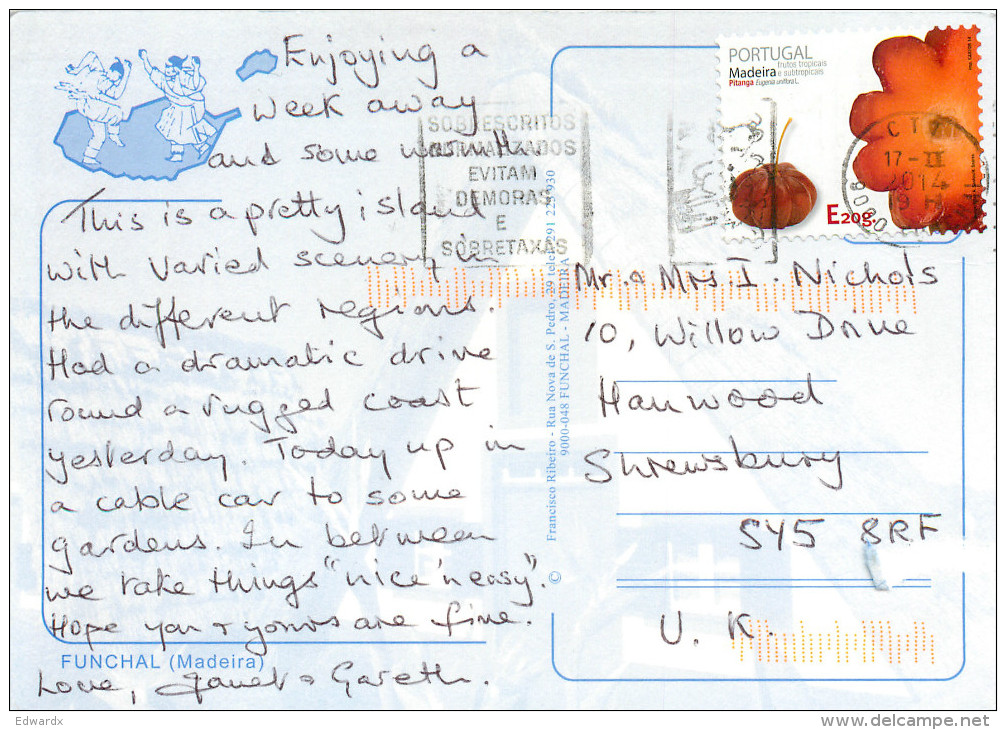 Enjoying a
week away
and some warmth.
This is a pretty island
with varied scenery in
the different regions.
Had a dramatic drive
round a rugged coast
yesterday. Today up in
a cable car to some
gardens. In between
we take things "nice 'n easy".
Hope you & yours are fine.
Love, Janet & Gareth.
FUNCHAL (Madeira)
PORTUGAL
Madeira frutos tropicais e subtropicais
Pitanga Eugenia uniflora L.
E20g.
SOBRESCRITOS
NORMALIZADOS
EVITAM
DEMORAS
E
SOBRETAXAS
CT
17-II
2014
19 H
9000
Mr. & Mrs I. Nichols
10, Willow Drive
Hanwood
Shrewsbury
SY5 8RF
U. K.
© Francisco Ribeiro - Rua Nova de S. Pedro, 29 telef. 291 223 930
9000-048 FUNCHAL - MADEIRA
Edwardx
delcampe.net